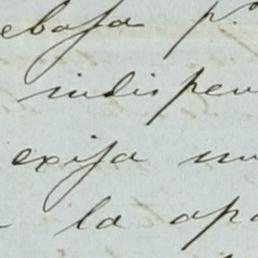 ebaja p.
indispen
exija un
la apa